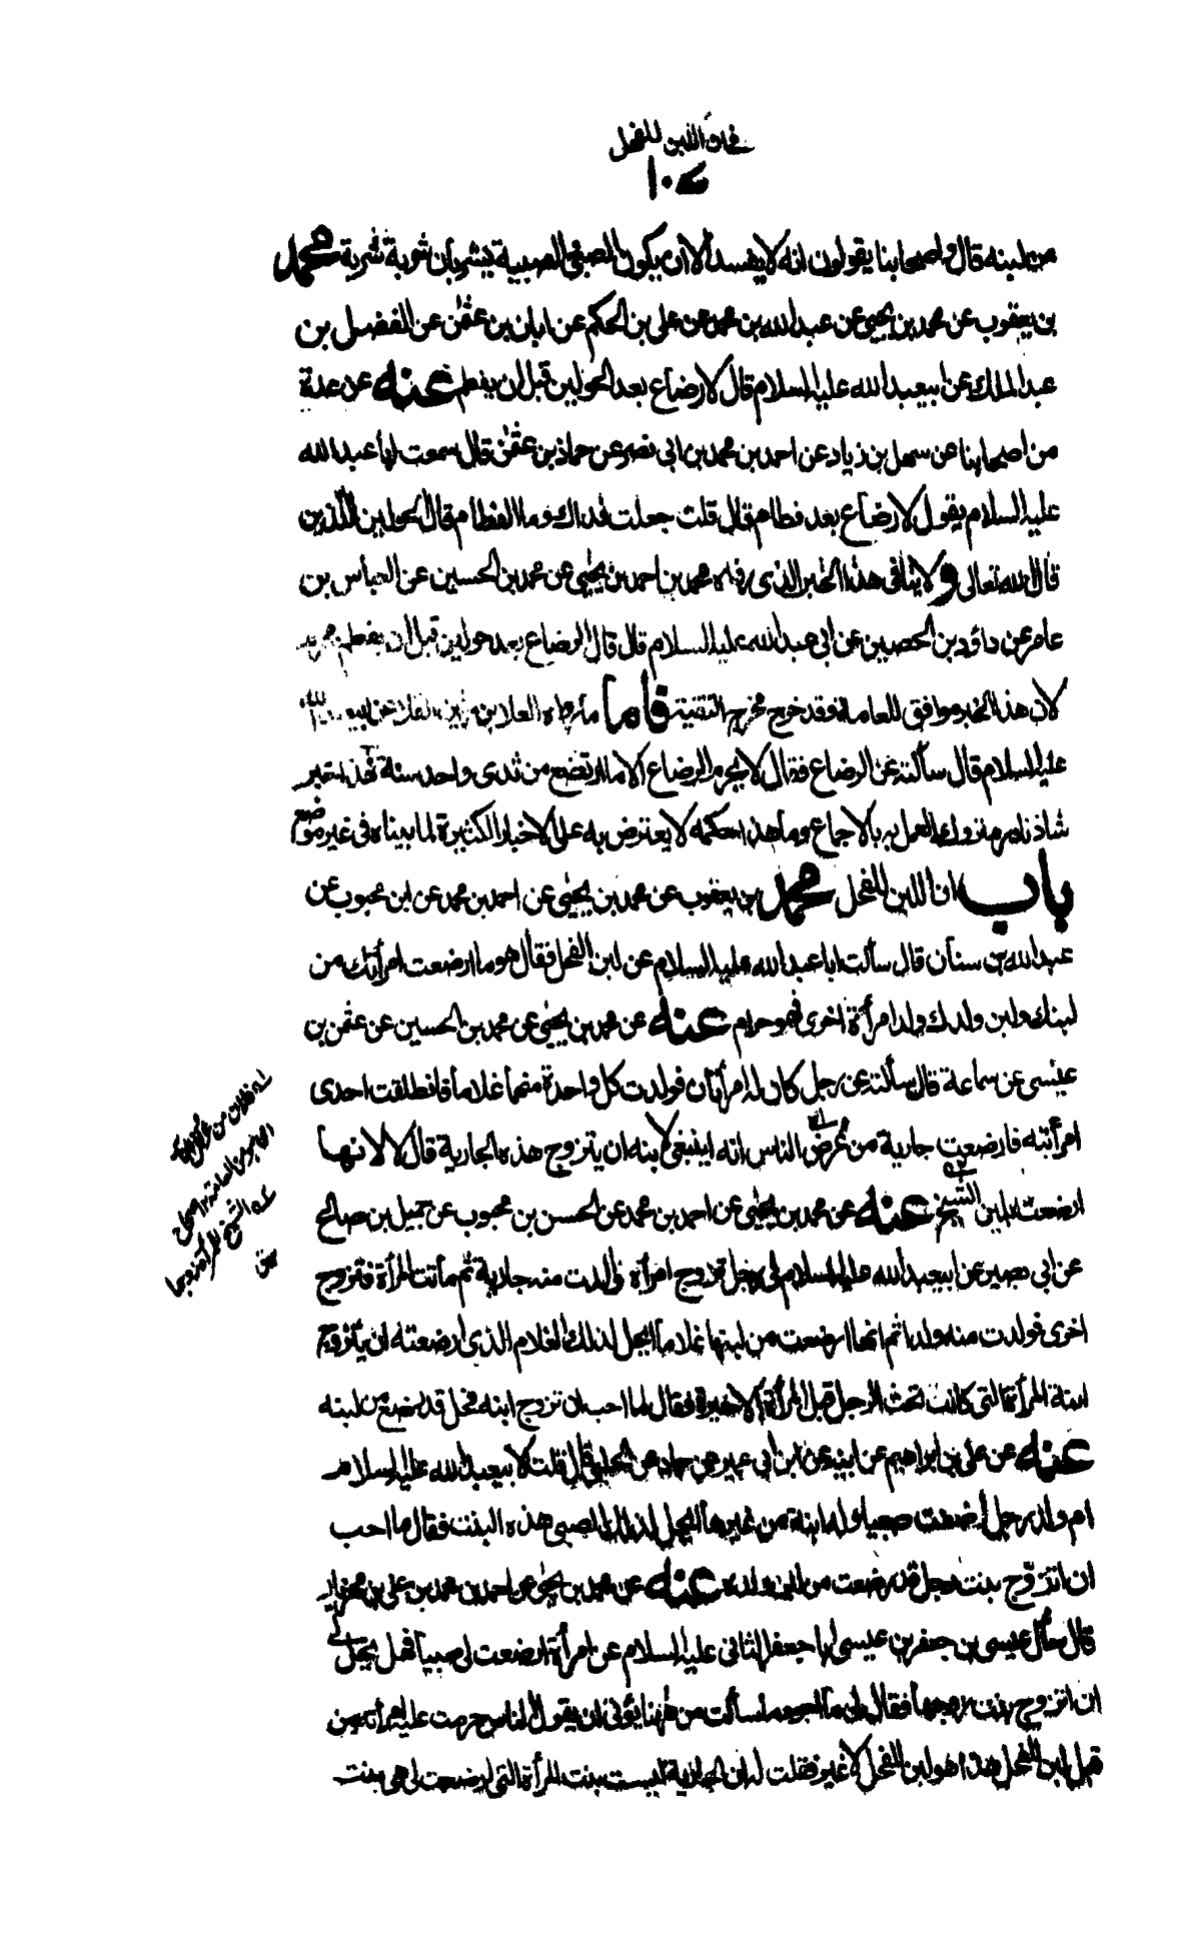 في ان اللبن للفحل
١٠٥
من لبنه قال واصحابنا يقولون انه لا يفسد الا ان يكون الصبي والصبية يشربان شربة شربة محمد
بن يعقوب عن محمد بن يحيى عن عبد الله بن محمد عن علي بن الحكم عن ابان بن عثمن عن الفضل بن
عبد الملك عن ابيعبد الله عليه السلام قال لا رضاع بعد الحولين قبل ان يفطم عنه عن عدة
من اصحابنا عن سهل بن زياد عن احمد بن محمد بن ابي نصر عن حماد بن عثمن قال سمعت ابا عبد الله
عليه السلام يقول لا رضاع بعد فطام قال قلت جعلت فداك وما الفطام قال الحولين اللذين
قال الله تعالى ولا ينافي هذا الخبر الذي رواه محمد بن احمد بن يحيى عن محمد بن الحسين عن العباس بن
عامر عن داؤد بن الحصين عن ابي عبد الله عليه السلام قال قال الرضاع بعد حولين قبل ان يفطم
لان هذا الخبر موافق للعامة وقد خرج مخرج التقية فاما ما رواه العلا بن رزين
عليه السلام قال سألته عن الرضاع فقال لا يحرم الرضاع الا ما ارتضع من ثدي واحد سنة فهذا الخبر
شاذ نادر متروك العمل به بالاجماع وما هذا حكمه لا يعترض به على الاخبار الكثيرة لما بيناه في غير موضع
باب ان اللبن للفحل محمد بن يعقوب عن محمد بن يحيى عن احمد بن محمد عن ابن محبوب عن
عبد الله بن سنان قال سألت ابا عبد الله عليه السلام عن لبن الفحل فقال هو ما ارضعت امرأتك من
لبنك ولبن ولدك ولد امرأة اخرى فهو حرام عنه عن محمد بن يحيى عن محمد بن الحسين عن عثمن بن
عيسى عن سماعة قال سألته عن رجل كان له امرأتان فولدت كل واحدة منهما غلاما فانطلقت احدى
امرأتيه فارضعت جارية من عرض الناس انه اينبغي لابنه ان يتزوج هذه الجارية قال لا لانها
ارضعت بلبن الشيخ عنه عن محمد بن يحيى عن احمد بن محمد عن الحسن بن محبوب عن جميل بن صالح
عن ابي بصير عن ابيعبد الله عليه السلام في رجل تزوج امرأة فولدت منه جارية ثم ماتت المرأة فتزوج
اخرى فولدت منه ولدا ثم انها ارضعت من لبنها غلاما ايحل لذلك الغلام الذي ارضعته ان يتزوج
ابنة المرأة التي كانت تحت الرجل قبل المرأة الاخيرة فقال ما احب ان تزوج ابنة فحل قد رضع من لبنه
عنه عن علي بن ابراهيم عن ابيه عن ابن ابي عمير عن حماد عن الحلبي قال قلت لابيعبد الله عليه السلام
ام ولد رجل ارضعت صبيا وله ابنة من غيرها ايحل لذلك الصبي هذه البنت فقال ما احب
ان اتزوج بنت رجل قد رضعت من لبن ولده عنه عن محمد بن يحيى عن احمد بن محمد عن علي بن مهزيار
قال سأل عيسى بن جعفر بن عيسى ابا جعفر الثاني عليه السلام عن امرأة ارضعت لي صبيا فهل يحل لي
ان اتزوج بنت زوجها فقال لي ما اجود ما سألت من ههنا يؤتى ان يقول الناس حرمت عليه امرأته من
قبل لبن الفحل هذا هو لبن الفحل لا غير فقلت له ان الجارية ليست بنت المرأة التي ارضعت لي هي بنت